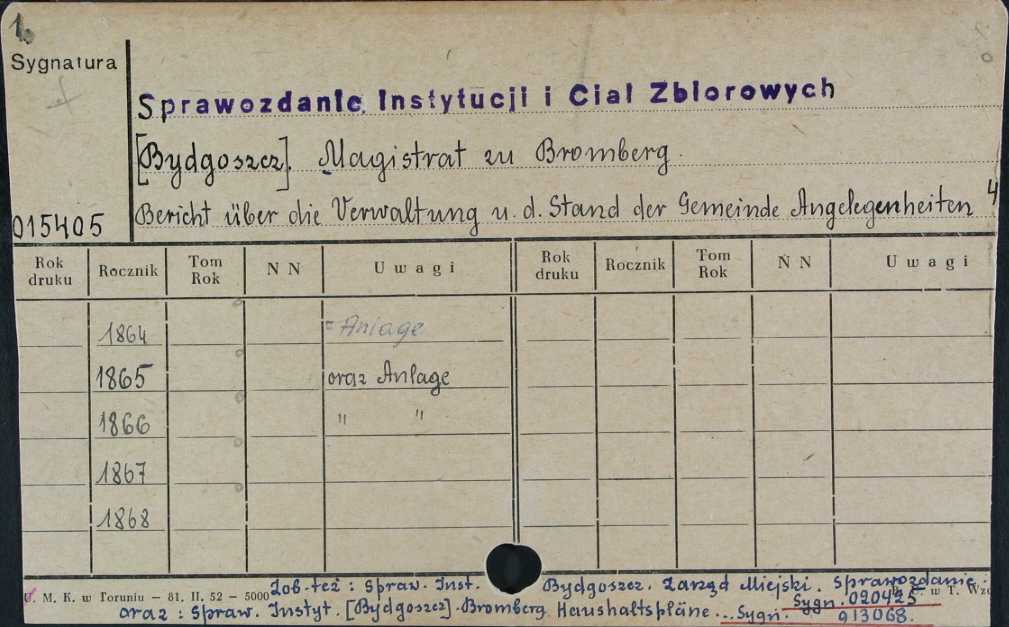 1.
Sygnatura
Sprawozdanie Instytucji i Ciał Zbiorowych
[Bydgoszcz]. Magistrat zu Bromberg.
015405
Bericht über die Verwaltung u. d. Stand der Gemeinde Angelegenheiten 4
Rok druku Rocznik Tom Rok N N Uwagi Rok druku Rocznik Tom Rok N N Uwagi
1864 = Anlage
1865 oraz Anlage
1866 " "
1867
1868
U. M. K. w Toruniu – 81. II. 52 – 5000 Zob. też: Spraw. Inst. Bydgoszcz. Zarząd Miejski. Sprawozdanie.
Sygn. 020425 w T.
oraz: Spraw. Instyt. [Bydgoszcz]. Bromberg. Haushaltspläne... Sygn. 913068.